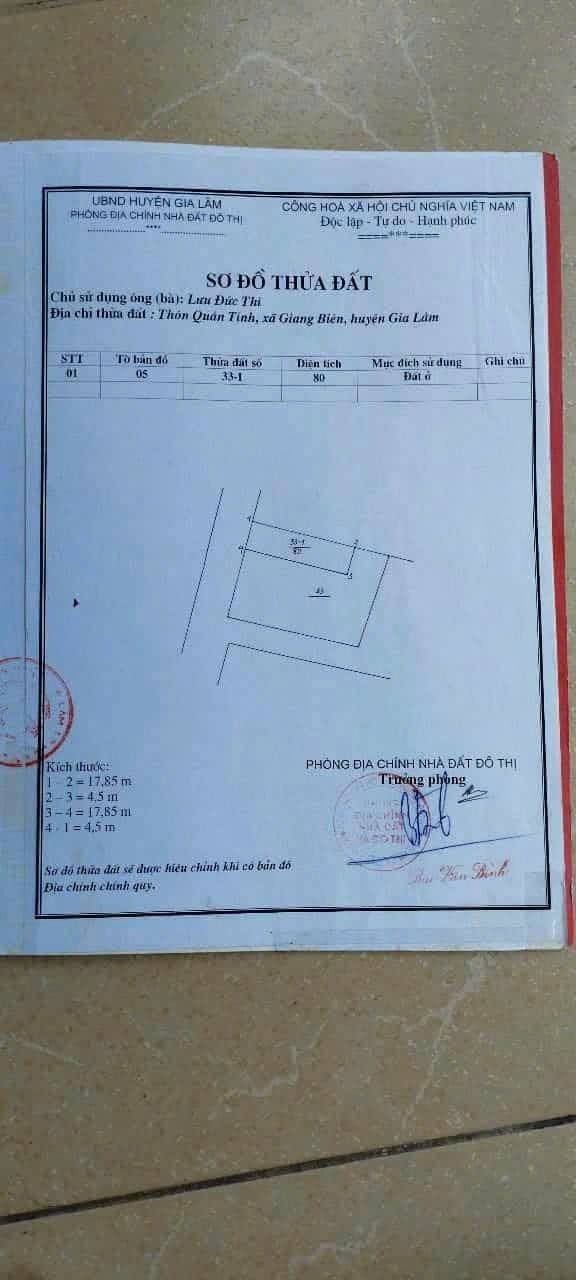 UBND HUYỆN GIA LÂM
PHÒNG ĐỊA CHÍNH NHÀ ĐẤT ĐÔ THỊ
CỘNG HOÀ XÃ HỘI CHỦ NGHĨA VIỆT NAM
Độc lập - Tự do - Hạnh phúc
====***====
SƠ ĐỒ THỬA ĐẤT
Chủ sử dụng ông (bà): Lưu Đức Thi
Địa chỉ thửa đất : Thôn Quán Tình, xã Giang Biên, huyện Gia Lâm
STT Tờ bản đồ Thửa đất số Diện tích Mục đích sử dụng Ghi chú
01 05 33-1 80 Đất ở
1 2
33-1
80
4 3
33
LÂM
Kích thước:
1 – 2 = 17,85 m
2 – 3 = 4,5 m
3 – 4 = 17,85 m
4 - 1 = 4,5 m
PHÒNG ĐỊA CHÍNH NHÀ ĐẤT ĐÔ THỊ
Trưởng phòng
PHÒNG
ĐỊA CHÍNH
NHÀ ĐẤT
ĐÔ THỊ
Văn Bình
Sơ đồ thửa đất sẽ được hiệu chỉnh khi có bản đồ
Địa chính chính quy.